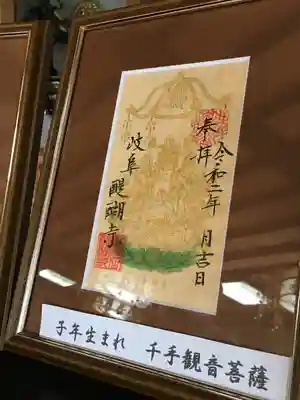 奉拝
令和二年 月吉日
岐阜 醍醐寺
子年生まれ 千手観音菩薩